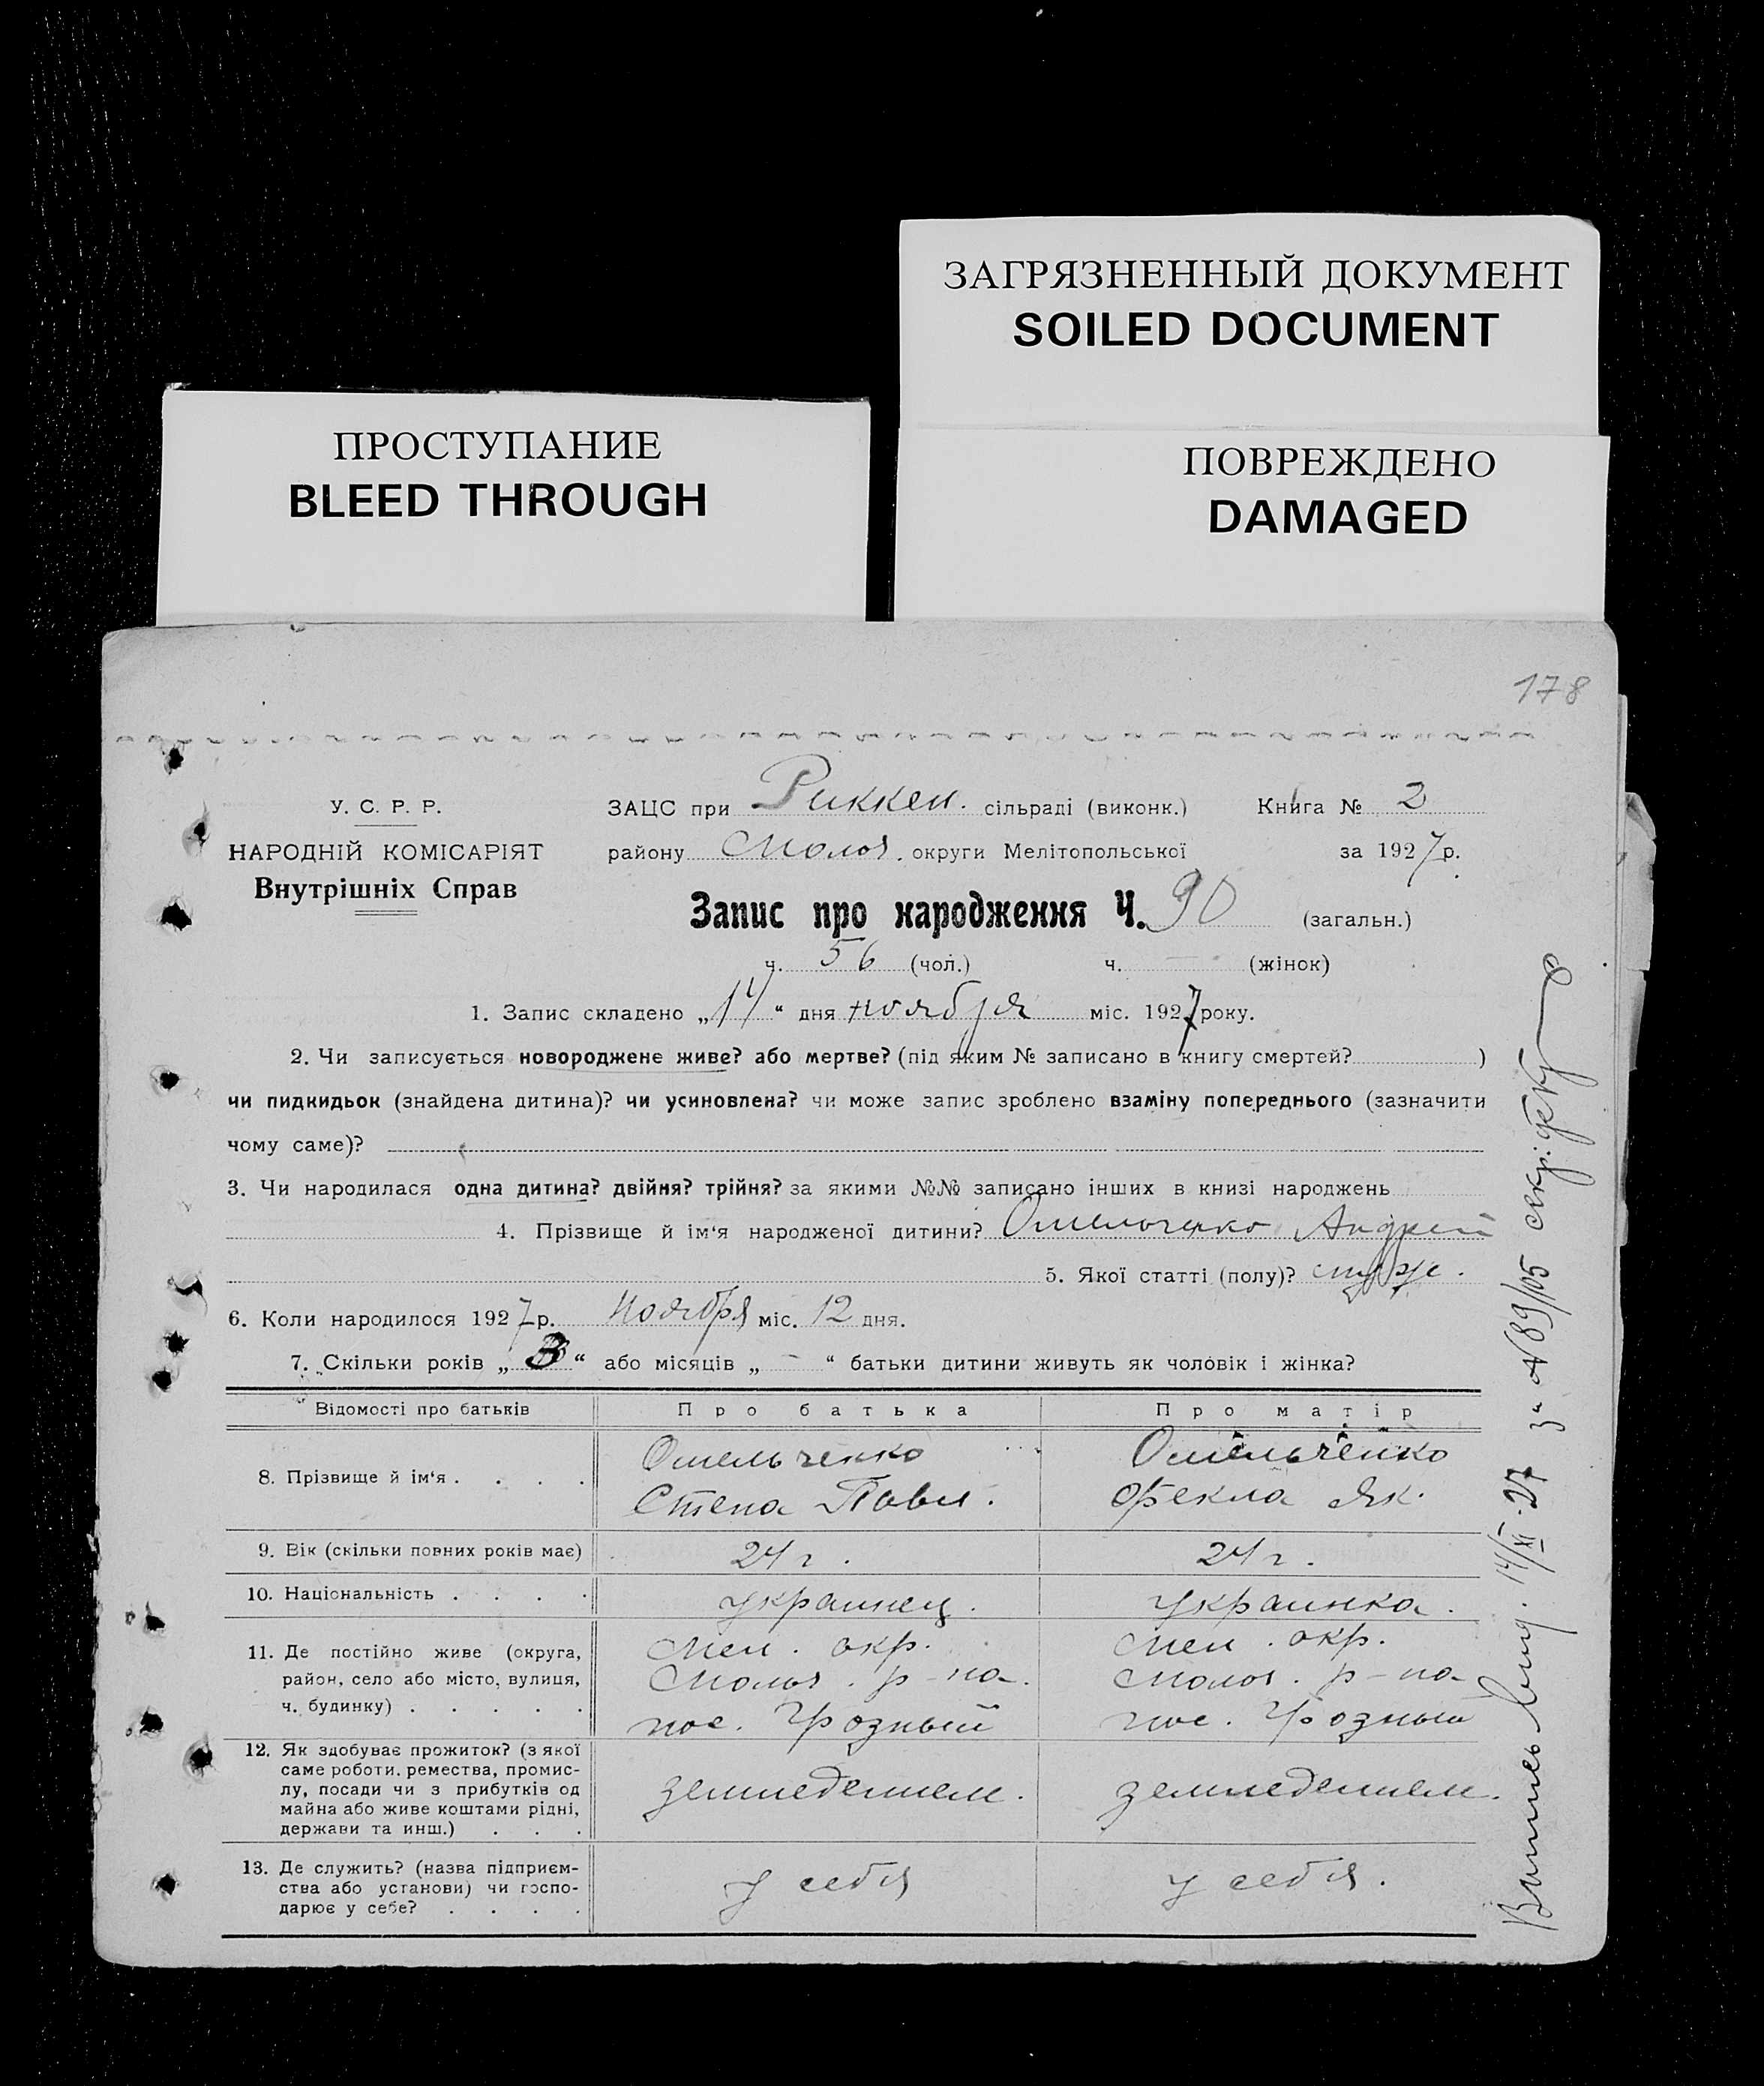 ЗАГРЯЗНЕННЫЙ ДОКУМЕНТ
SOILED DOCUMENT
ПРОСТУПАНИЕ
BLEED THROUGH
ПОВРЕЖДЕНО
DAMAGED
178
У. С. Р. Р.
НАРОДНІЙ КОМІСАРІЯТ
Внутрішніх Справ
ЗАЦС при Риккен. сільраді (виконк.) Книга № 2
району Молоч. округи Мелітопольської за 1927 р.
Запис про народження Ч. 90 (загальн.)
ч. 56 (чол.) ч. — (жінок)
1. Запис складено „14“ дня ноября міс. 1927 року.
2. Чи записується новороджене живе? або мертве? (під яким № записано в книгу смертей? )
чи пидкидьок (знайдена дитина)? чи усиновлена? чи може запис зроблено взаміну попереднього (зазначити
чому саме)?
3. Чи народилася одна дитина? двійня? трійня? за якими №№ записано інших в книзі народжень
4. Прізвище й ім‘я народженої дитини? Омельченко Андрей
5. Якої статті (полу)? муж.
6. Коли народилося 1927 р. Ноября міс. 12 дня.
7. Скільки років „3“ або місяців „-“ батьки дитини живуть як чоловік і жінка?
Відомості про батьків Про батька Про матір
8. Прізвище й ім‘я . . . . Омельченко Омельченко
Степа Павл. Фекла Як.
9. Вік (скільки повних років має) 24 г. 24 г.
10. Національність . . . . украинец. украинка.
11. Де постійно живе (округа, Мел. окр. Мел. окр.
район, село або місто, вулиця, Молоч. р-на. Молоч. р-на
ч. будинку) . . . . . пос. Грозный пос. Грозный
12. Як здобуває прожиток? (з якої
саме роботи. ремества, промис-
лу, посади чи з прибутків од земледелием. земледелием.
майна або живе коштами рідні,
держави та инш.) . . .
13. Де служить? (назва підприєм-
ства або установи) чи госпо- у себя у себя.
дарює у себе? . . . .
14/XI-27 з № 89/105